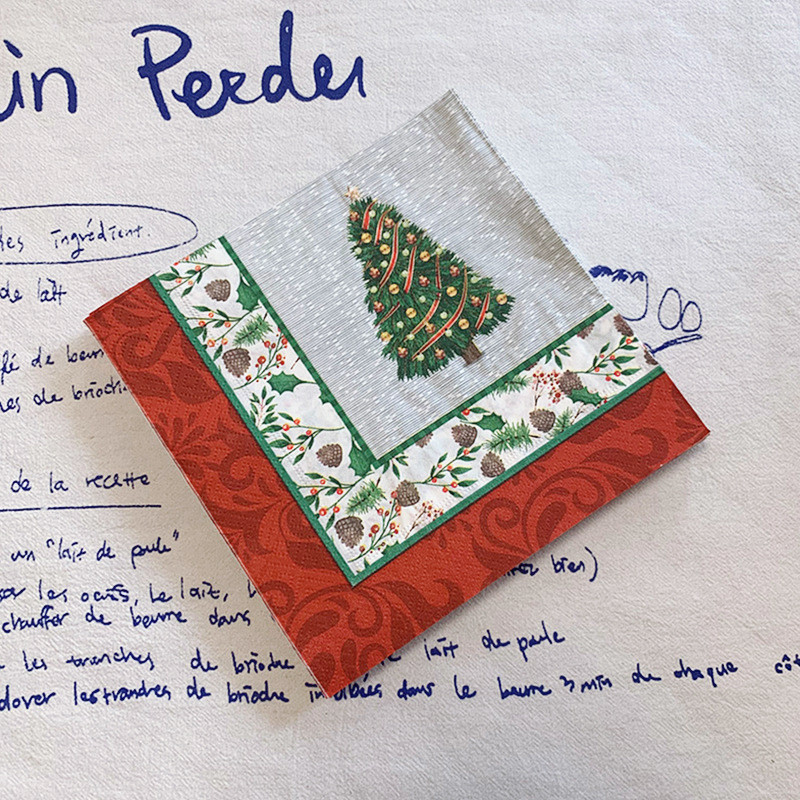 in Perdu
les ingrédient.
de lait
fé de beurr
nes de brioch
de la recette
un "lait de poule"
ser les oeufs, le lait, l
chauffer de beurre dans
bien)
les tranches de brioche le lait de poule
dorer lestranches de brioche imbibées dans le beurre 3 min de chaque côt